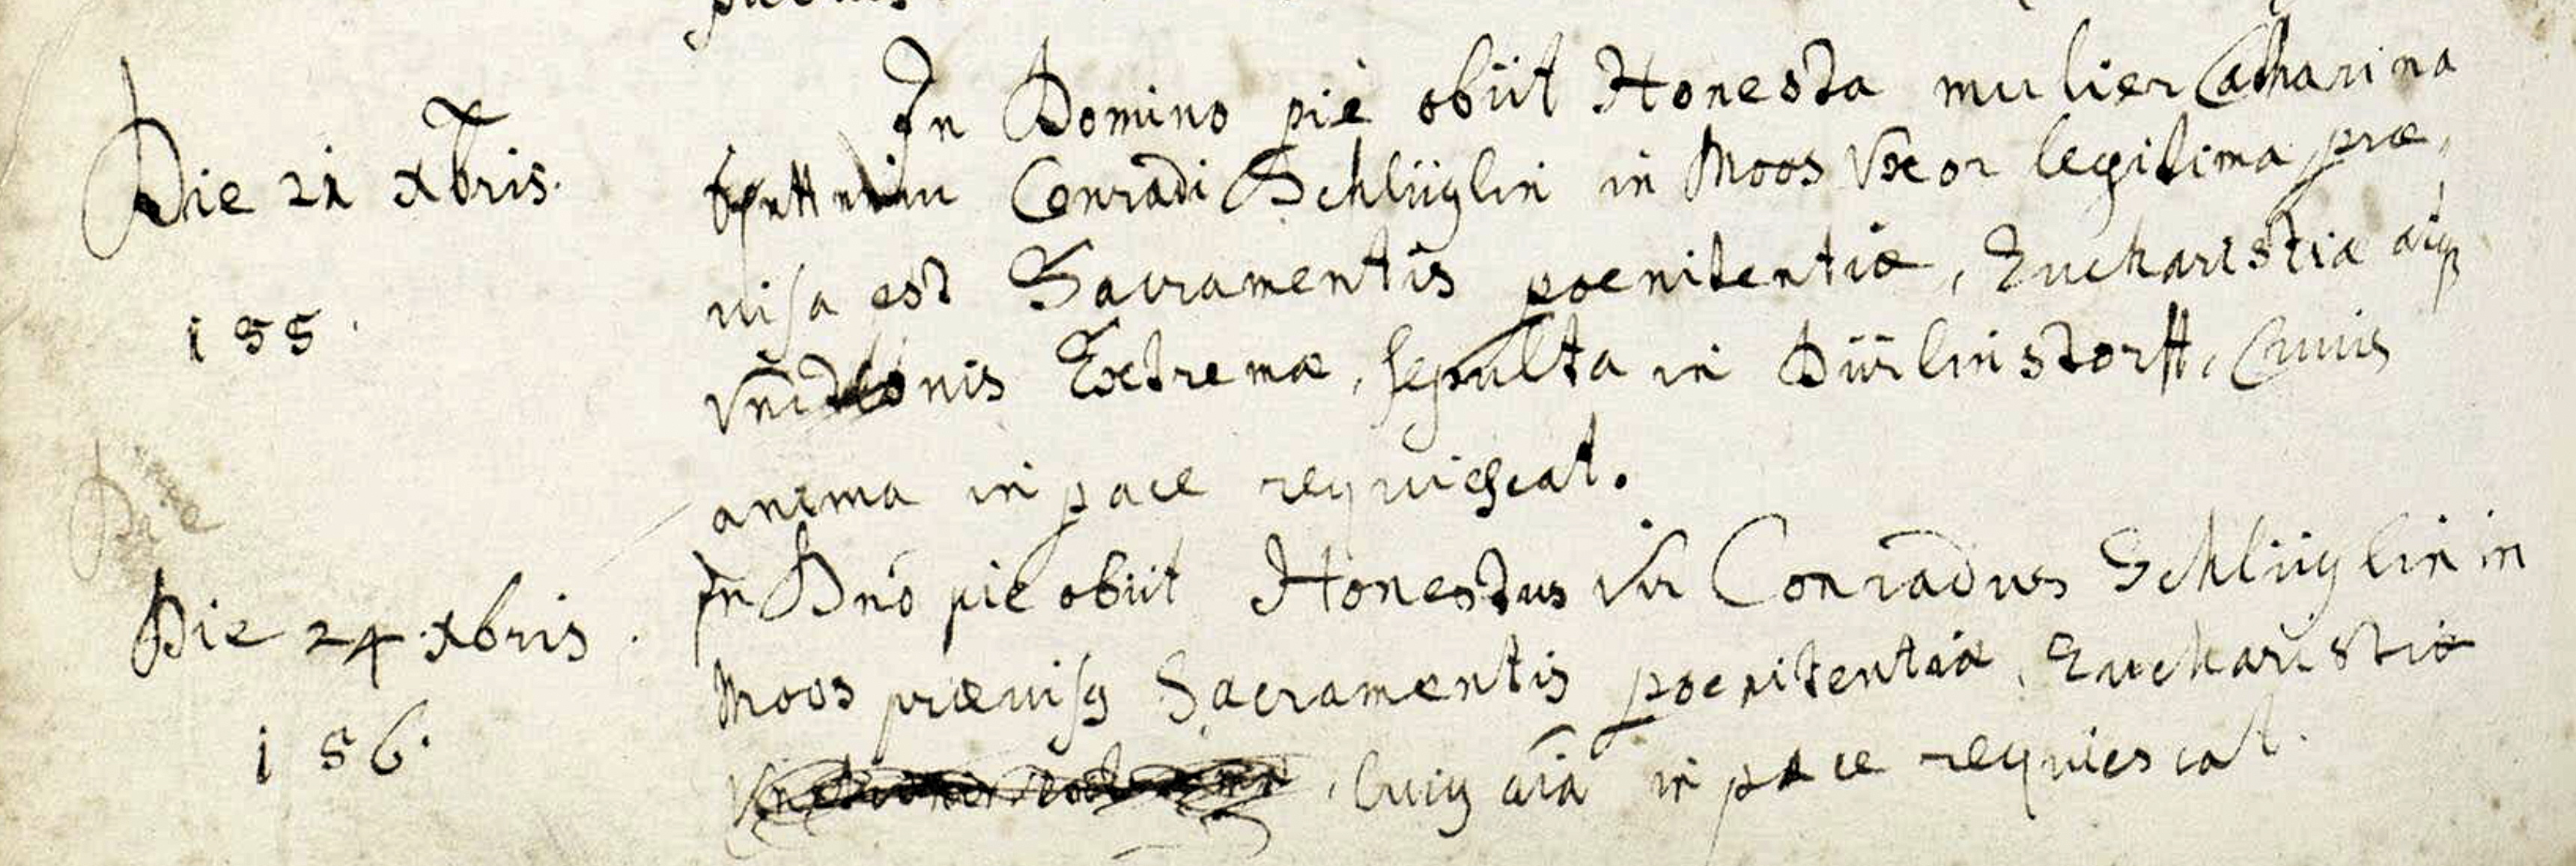 Die 21 Xbris.
155.
In Domino pie obiit Honesta mulier Catharina
Conradi Schlüglin in Moos Vxor legitima præ,
uisa est Sacramentis poenitentiæ, Eucharistiæ atq
Vnctionis Extremæ, sepulta in Dürlinstorff, Cuius
anima in pace requiescat.
Die
Die 24 Xbris.
156.
In Dno pie obiit Honestus Vir Conradus Schlüglin in
Moos præuisq Sacramentis poenitentiæ, Eucharistiæ
, Cuiq aia in pace requiescat.